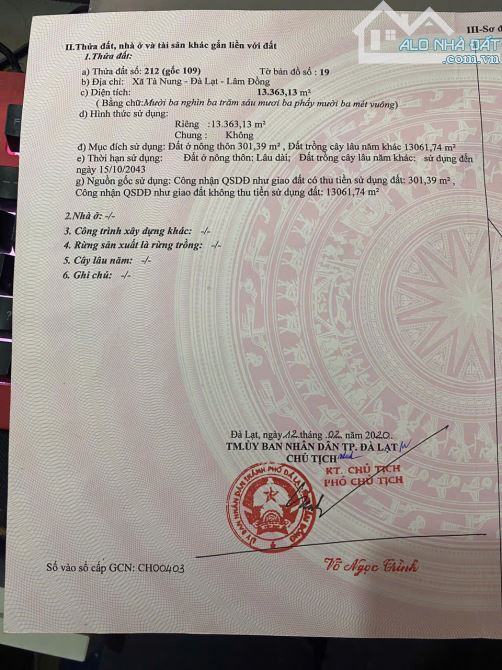 III-Sơ đ
ALO NHÀ ĐẤT
alonhadat.com.vn
II.Thửa đất, nhà ở và tài sản khác gắn liền với đất
1.Thửa đất:
a) Thửa đất số: 212 (gốc 109) Tờ bản đồ số : 19
b) Địa chỉ: Xã Tà Nung - Đà Lạt - Lâm Đồng
c) Diện tích: 13.363,13 m²
( Bằng chữ: Mười ba nghìn ba trăm sáu mươi ba phẩy mười ba mét vuông)
d) Hình thức sử dụng:
Riêng : 13.363,13 m²
Chung : Không
đ) Mục đích sử dụng: Đất ở nông thôn 301,39 m² , Đất trồng cây lâu năm khác 13061,74 m²
e) Thời hạn sử dụng: Đất ở nông thôn: Lâu dài; Đất trồng cây lâu năm khác: sử dụng đến
ngày 15/10/2043
g) Nguồn gốc sử dụng: Công nhận QSDĐ như giao đất có thu tiền sử dụng đất: 301,39 m² ,
Công nhận QSDĐ như giao đất không thu tiền sử dụng đất: 13061,74 m²
2.Nhà ở: -/-
3. Công trình xây dựng khác: -/-
4. Rừng sản xuất là rừng trồng: -/-
5. Cây lâu năm: -/-
6. Ghi chú: -/-
Đà Lạt, ngày 12 tháng 02 năm 2020
TM.ỦY BAN NHÂN DÂN TP. ĐÀ LẠT
CHỦ TỊCH
KT. CHỦ TỊCH
PHÓ CHỦ TỊCH
ỦY BAN NHÂN DÂN THÀNH PHỐ ĐÀ LẠT
Võ Ngọc Trình
Số vào sổ cấp GCN: CH00403